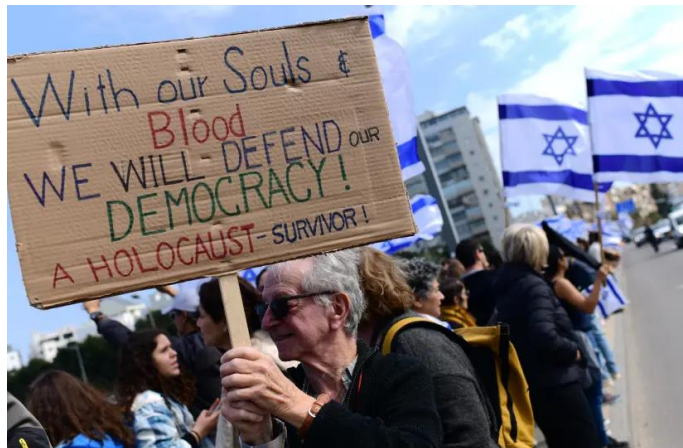 With our Souls &
Blood
WE WILL DEFEND OUR
DEMOCRACY!
A HOLOCAUST-SURVIVOR!